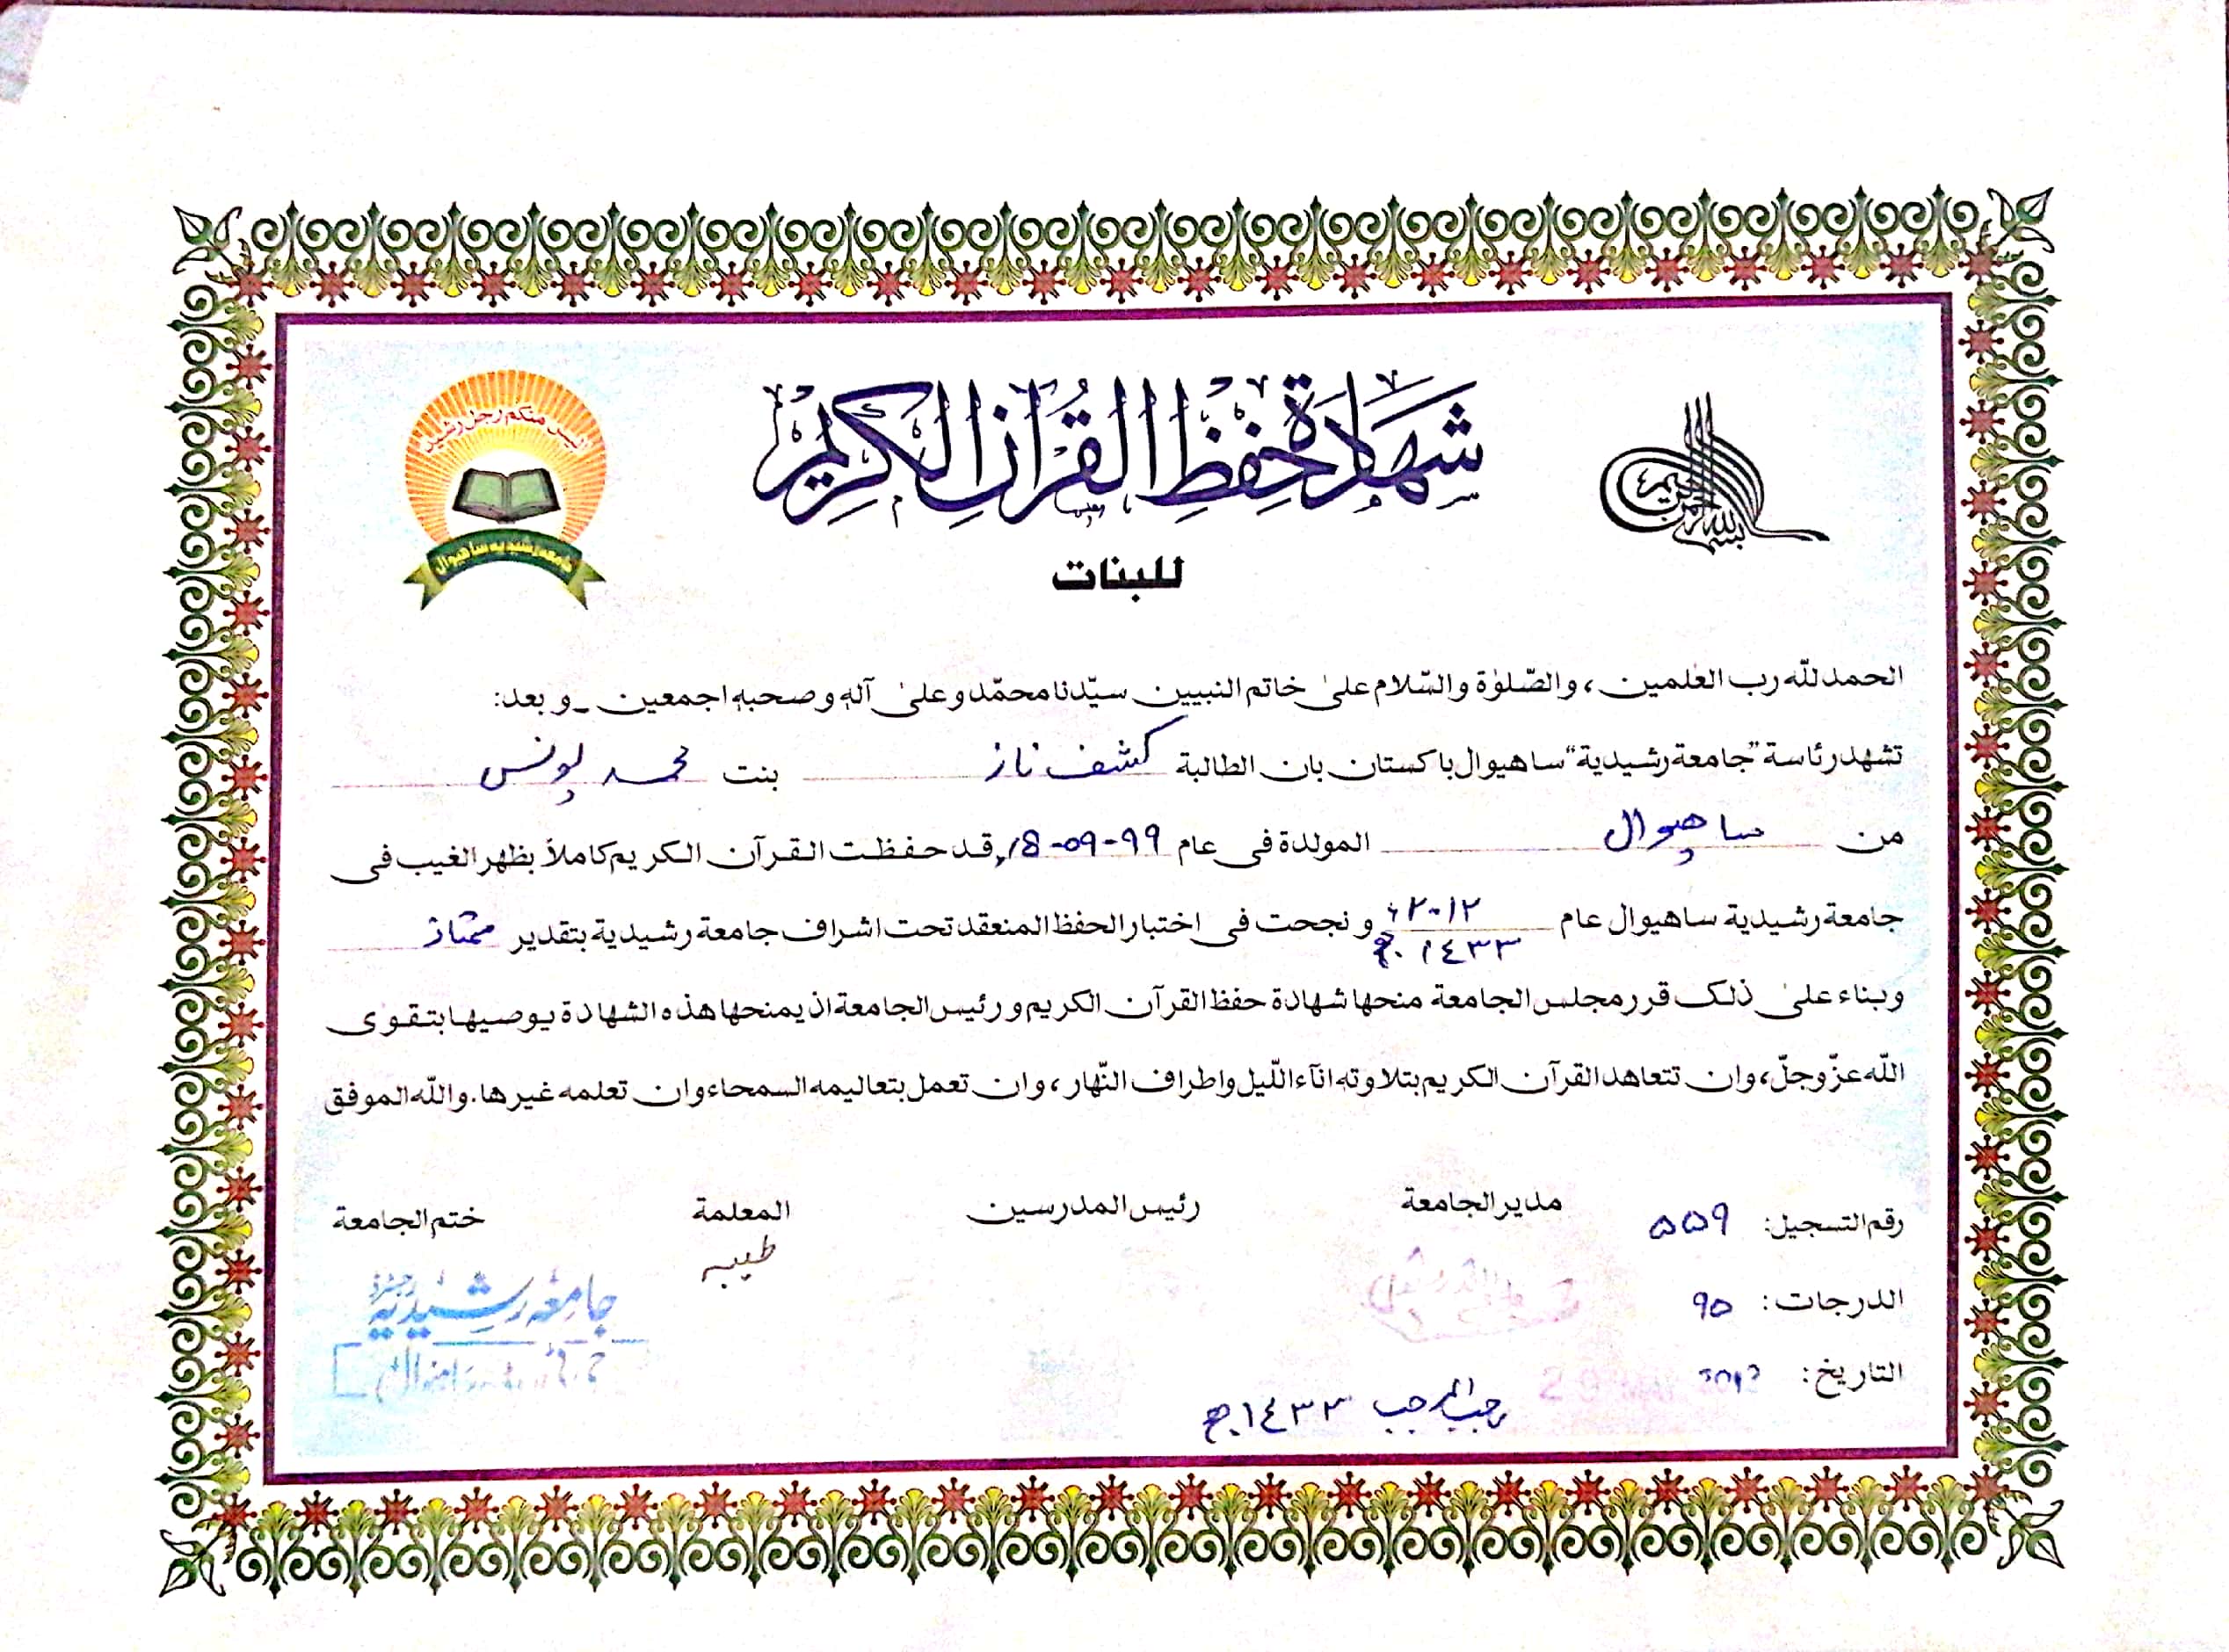 بسم الله الرحمن الرحيم
شَهَادَةُ حِفْظِ الْقُرْآنِ الْكَرِيمِ
اليس منكم رجل رشيد
جامعه رشيديه ساهيوال
للبنات
الحمد للّٰه رب العٰلمين، والصّلوٰة والسّلام علىٰ خاتم النبيين سيّدنا محمّد وعلىٰ آلهٖ وصحبهٖ اجمعين ـ وبعد:
تشهد رئاسة "جامعة رشيدية" ساهيوال باكستان بان الطالبة کشف ناز بنت محمد یونس
من ساہیوال المولدة فى عام 18-09-99, قد حفظت القرآن الكريم كاملاً بظهر الغيب فى
جامعة رشيدية ساهيوال عام ٢٠١٢ء ١٤٣٣ھ ونجحت فى اختبار الحفظ المنعقد تحت اشراف جامعة رشيدية بتقدير ممتاز
وبناء علىٰ ذلك قرر مجلس الجامعة منحها شهادة حفظ القرآن الكريم و رئيس الجامعة اذ يمنحها هذه الشهادة يوصيها بتقوى
اللّٰه عزّ وجلّ، وان تتعاهد القرآن الكريم بتلاوته انآء اللّيل واطراف النّهار، وان تعمل بتعاليمه السمحاء وان تعلمه غيرها. واللّٰه الموفق
رقم التسجيل: ۵۵۹ مدير الجامعة رئيس المدرسين المعلمة ختم الجامعة
طیبہ
الدرجات: ۹۵
جامعہ رشیدیہ
التاريخ: 29 MAY 2012
رجب المرجب ١٤٣٣ھ